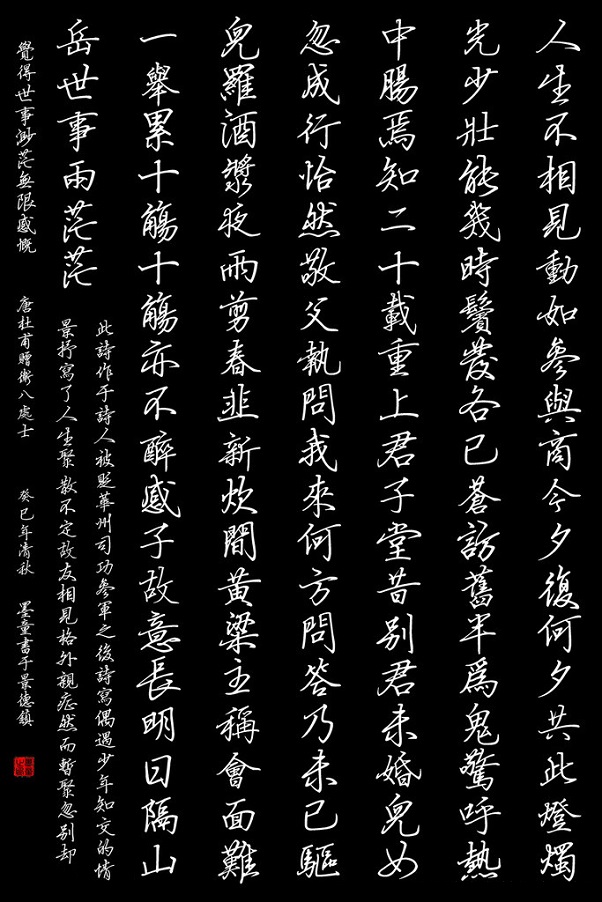 人生不相見動如參與商今夕復何夕共此燈燭
光少壯能幾時鬢發各已蒼訪舊半爲鬼驚呼熱
中腸焉知二十載重上君子堂昔別君未婚兒女
忽成行怡然敬父執問我來何方問答乃未已驅
兒羅酒漿夜雨剪春韭新炊間黃粱主稱會面難
一舉累十觴十觴亦不醉感子故意長明日隔山
岳世事兩茫茫
此詩作于詩人被貶華州司功參軍之後詩寫偶遇少年知交的情
景抒寫了人生聚散不定故友相見格外親症然而暫聚忽別却
覺得世事渺茫無限感慨 唐杜甫贈衛八處士 癸巳年清秋 墨童書于景德鎮